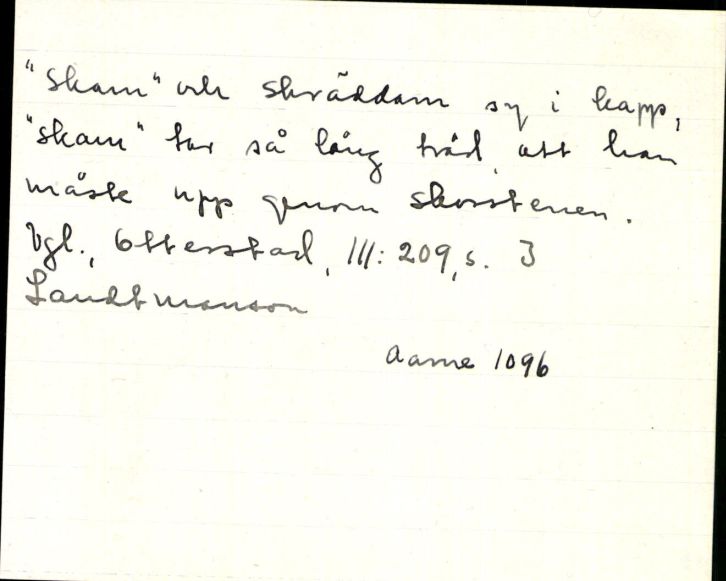 "Skam" och skräddarn sy i kapp,
"skam" tar så lång tråd, att han
måste upp genom skorstenen.
Vgl., Otterstad, III: 209, s. 3
Landtmanson
Aarne 1096